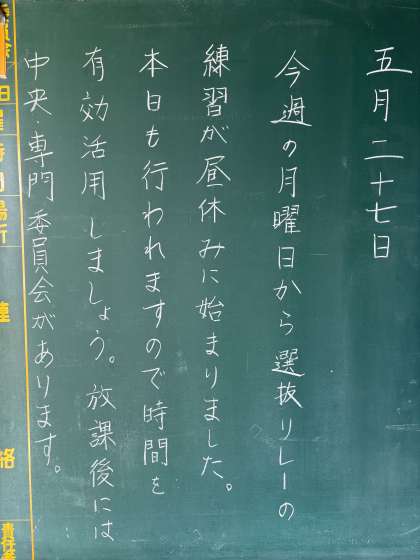 五月二十七日
今週の月曜日から選抜リレーの
練習が昼休みに始まりました。
本日も行われますので時間を
有効活用しましょう。放課後には
中央・専門委員会があります。
委員会
日
曜
時間
場所
連
絡
責任者